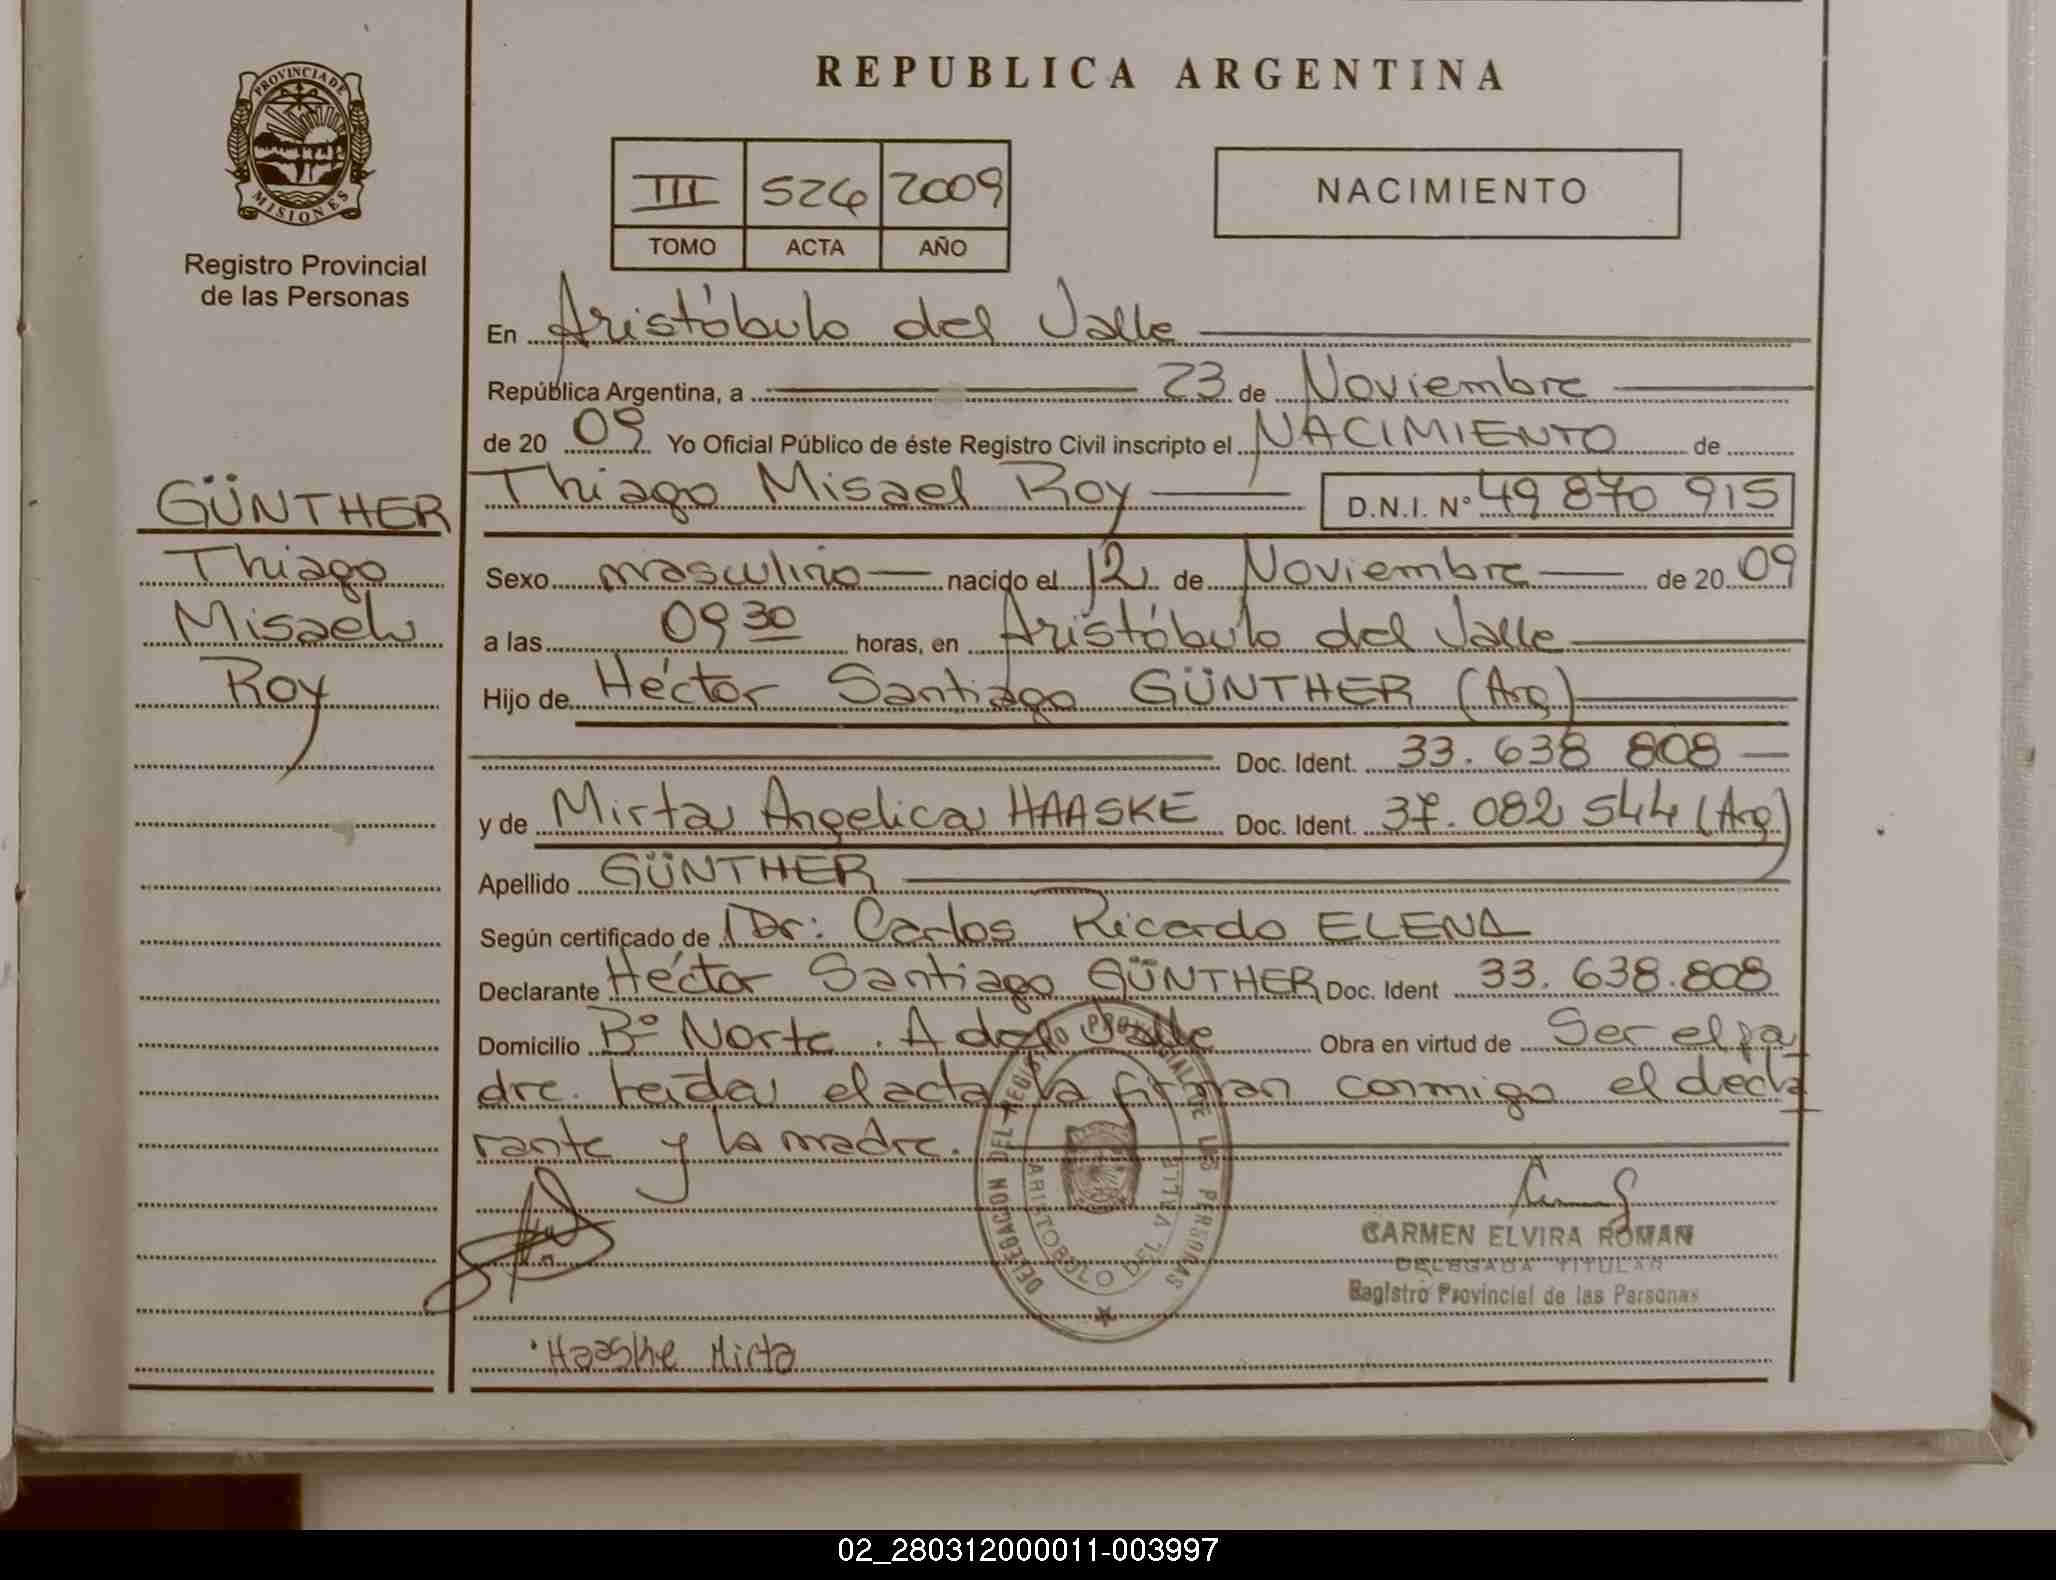 PROVINCIA DE
MISIONES
Registro Provincial
de las Personas
GÜNTHER
Thiago
Misael
Roy
REPUBLICA ARGENTINA
III 526 2009
TOMO ACTA AÑO
NACIMIENTO
En Aristóbulo del Valle
República Argentina, a 23 de Noviembre
de 20 09 Yo Oficial Público de éste Registro Civil inscripto el NACIMIENTO de
Thiago Misael Roy D.N.I. N° 49 870 915
Sexo masculino nacido el 12 de Noviembre de 20 09
a las 09 30 horas, en Aristóbulo del Valle
Hijo de Héctor Santiago GÜNTHER (Arg)
Doc. Ident. 33.638 808
y de Mirta Angelica HAASKE Doc. Ident. 37.082 544 (Arg)
Apellido GÜNTHER
Según certificado de Dr: Carlos Ricardo ELENA
Declarante Héctor Santiago GÜNTHER Doc. Ident 33.638.808
Domicilio Bº Norte. A del Valle Obra en virtud de Ser el pa
dre. Leída el acta la firman conmigo el decla
rante y la madre.
DELEGACION DEL REGISTRO PROVINCIAL DE LAS PERSONAS
ARISTOBULO DEL VALLE
CARMEN ELVIRA ROMAN
DELEGADA TITULAR
Registro Provincial de las Personas
Haaske Mirta
02_280312000011-003997